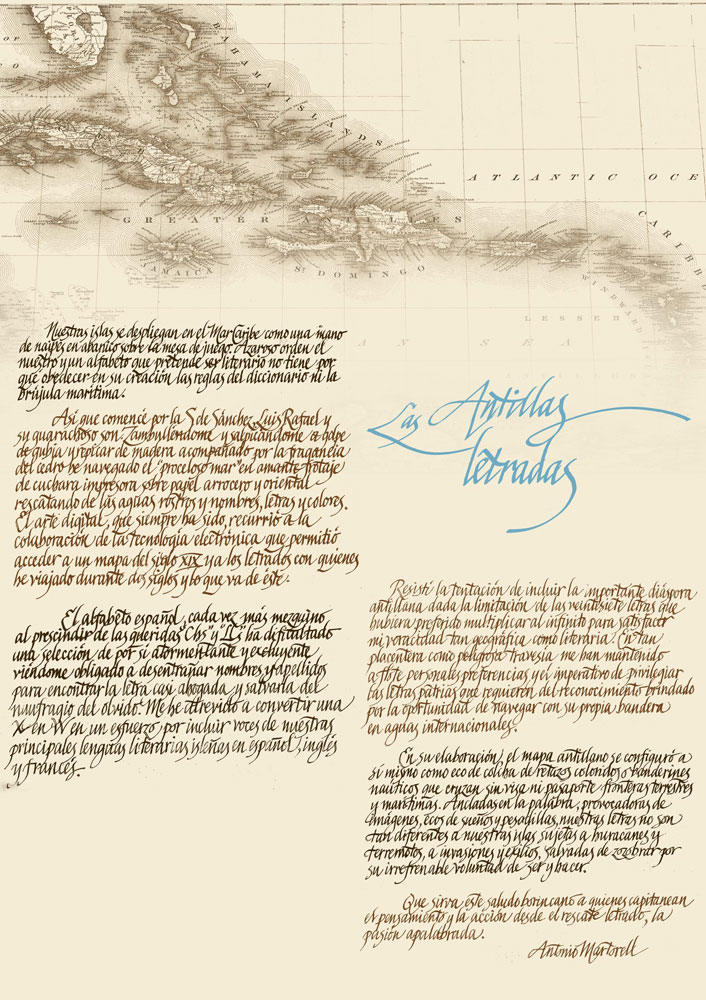 BAHAMA ISLANDS
ATLANTIC OCE
GREATER ANTILLES
CARIBBE
JAMAICA
St DOMINGO
WINDWARD
LESSER
AN SEA
Nuestras islas se despliegan en el Mar Caribe como una mano
de naipes en abanico sobre la mesa de juego. Azaroso orden el
nuestro y un alfabeto que pretende ser literario no tiene por
qué obedecer en su creación las reglas del diccionario ni la
brújula marítima.
Así que comencé por la S de Sánchez, Luis Rafael y
su guarachoso son. Zambulléndome y salpicándome a golpe
de gubia y repicar de madera acompañado por la fragancia
del cedro he navegado el "proceloso mar" en amante frotaje
de cuchara impresora sobre papel arrocero y oriental
rescatando de las aguas rostros y nombres, letras y colores.
El arte digital, que siempre ha sido, recurrió a la
colaboración de la tecnología electrónica que permitió
acceder a un mapa del siglo XIX y a los letrados con quienes
he viajado durante dos siglos y lo que va de éste.
El alfabeto español, cada vez más mezquino
al prescindir de las queridas "Chs" y "Lls" ha dificultado
una selección de por sí atormentante y excluyente
viéndome obligado a desentrañar nombres y apellidos
para encontrar la letra casi ahogada y salvarla del
naufragio del olvido. Me he atrevido a convertir una
X en W en un esfuerzo por incluir voces de nuestras
principales lenguas literarias isleñas en español, inglés
y francés.
Las Antillas
letradas
Resistí la tentación de incluir la importante diáspora
antillana dada la limitación de las veintisiete letras que
hubiera preferido multiplicar al infinito para satisfacer
mi voracidad tan geográfica como literaria. En tan
placentera como peligrosa travesía me han mantenido
a flote personales preferencias y el imperativo de privilegiar
las letras patrias que requieren del reconocimiento brindado
por la oportunidad de navegar con su propia bandera
en aguas internacionales.
En su elaboración, el mapa antillano se configuró a
sí mismo como eco de colcha de retazos coloridos o banderines
náuticos que cruzan sin visa ni pasaporte fronteras terrestres
y marítimas. Ancladas en la palabra, provocadoras de
imágenes, ecos de sueños y pesadillas, nuestras letras no son
tan diferentes a nuestras islas sujetas a huracanes y
terremotos, a invasiones y exilios, salvadas de zozobrar por
su irrefrenable voluntad de ser y hacer.
Que sirva este saludo borincano a quienes capitanean
el pensamiento y la acción desde el rescate letrado, la
pasión apalabrada.
Antonio Martorell